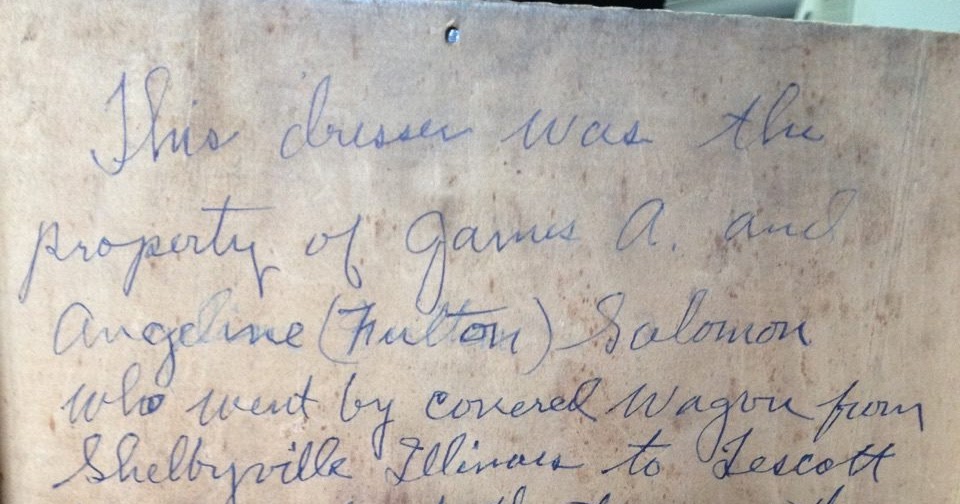 This dresser was the
property of James A. and
Angeline (Fulton) Salomon
who went by covered wagon from
Shelbyville Illinois to Tescott